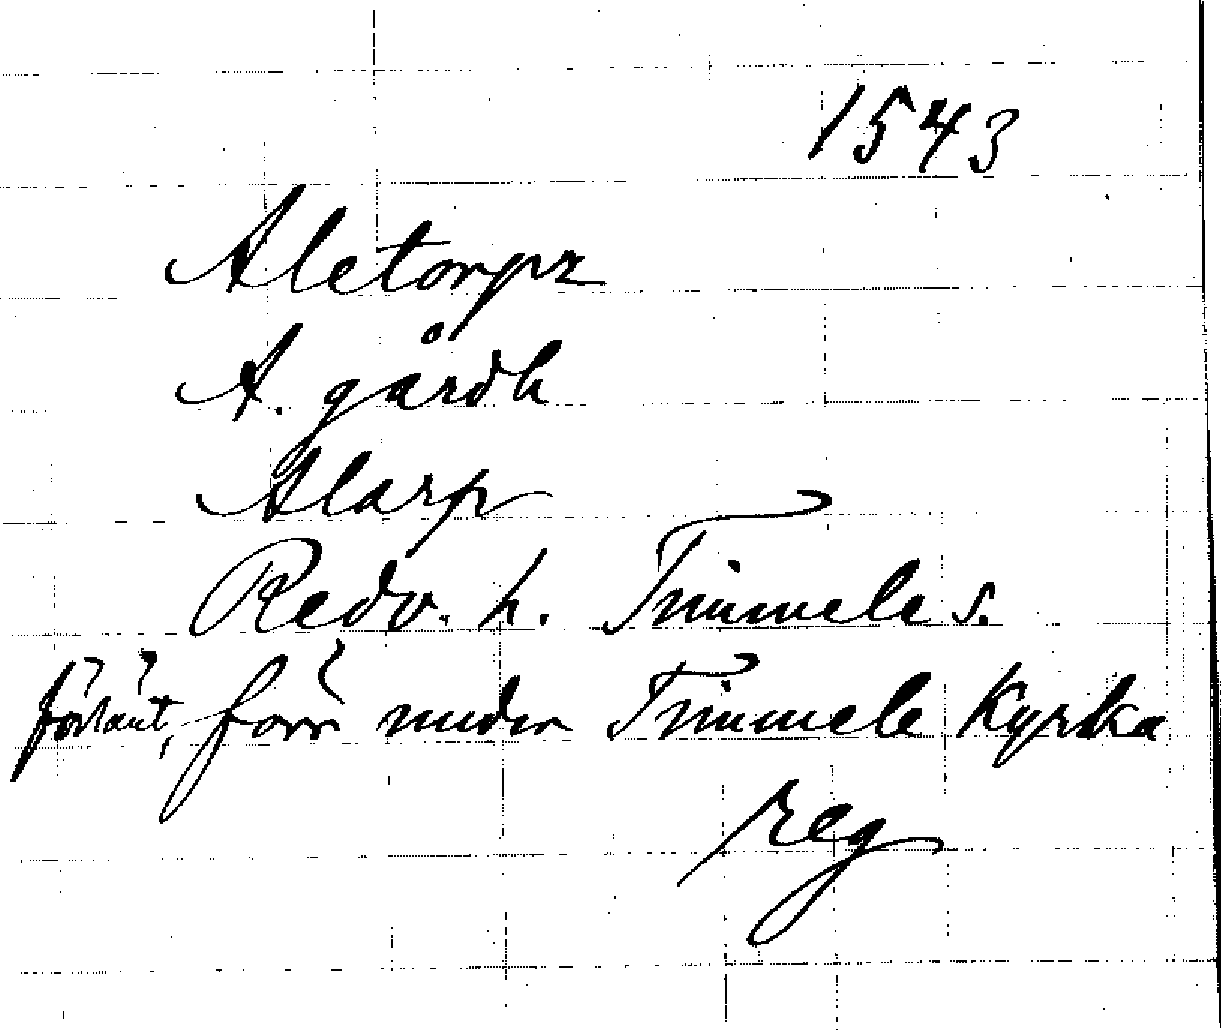 1543
Aletorpz
A. gårdh
Alarp
Redv. h. Timmele s.
förlänt, förr under Timmele Kyrka
reg